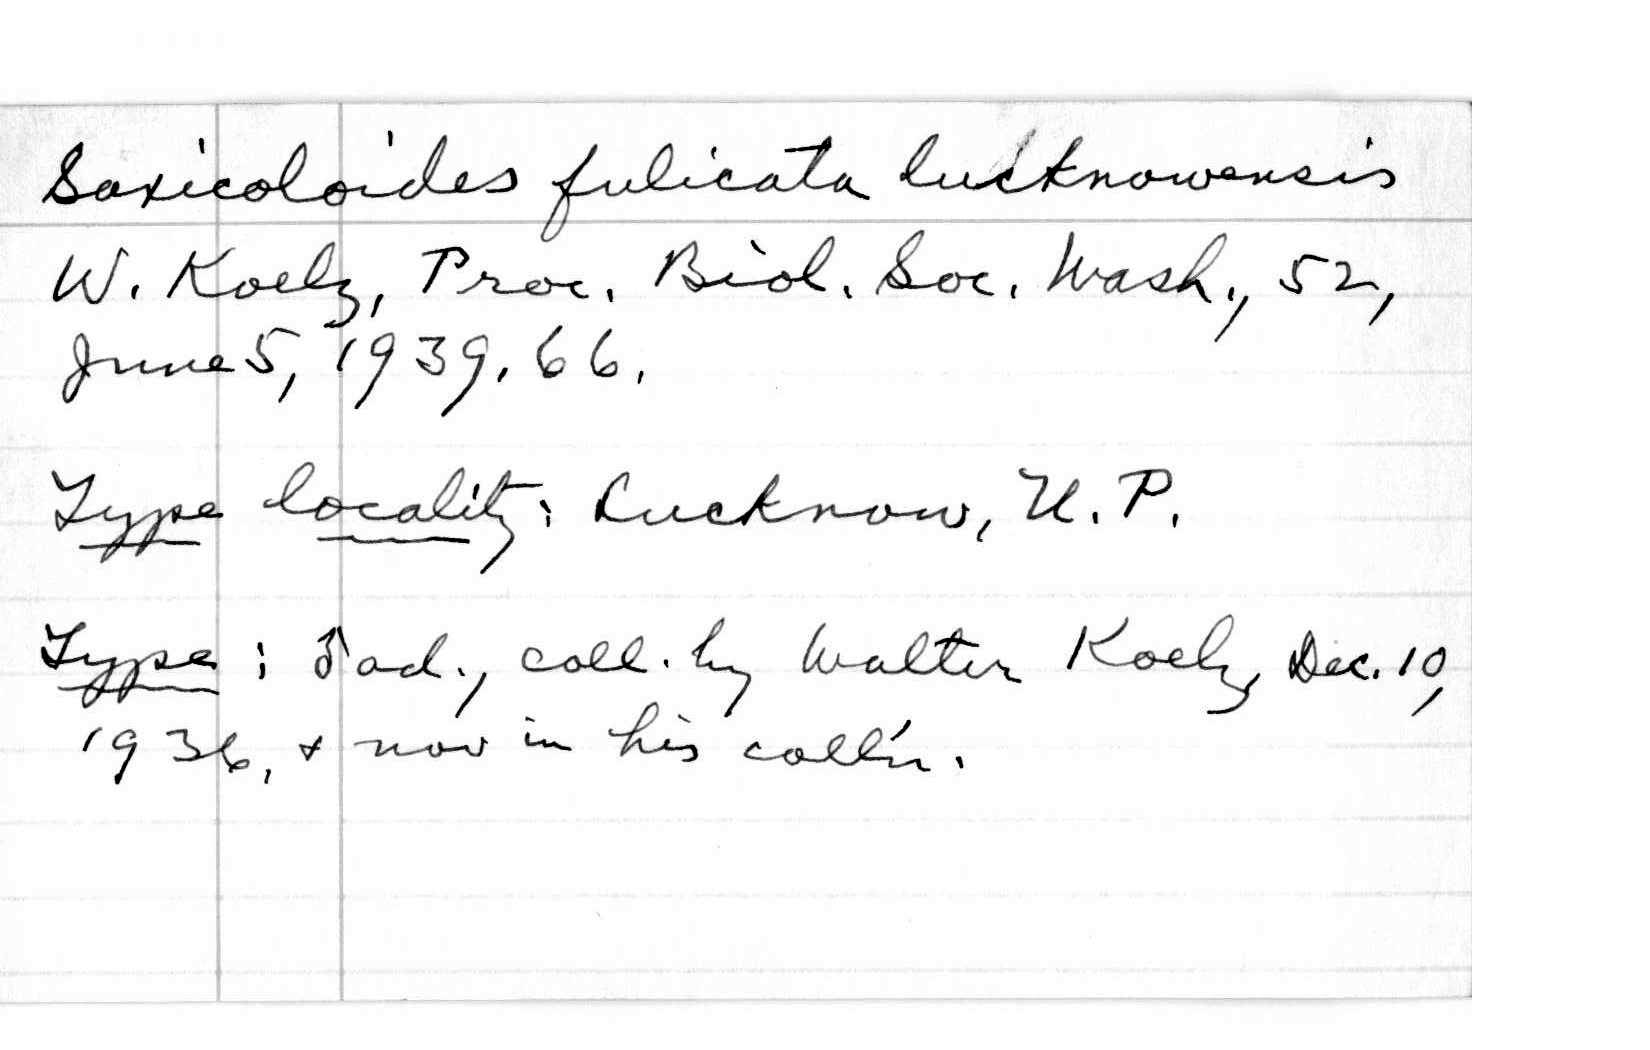 Saxicoloides fulicata lucknowensis
W. Koelz, Proc. Biol. Soc. Wash., 52,
June 5, 1939, 66.
Type locality: Lucknow, U.P.
Type: ♂ ad., coll. by Walter Koelz, Dec. 10,
1936, & now in his coll'n.